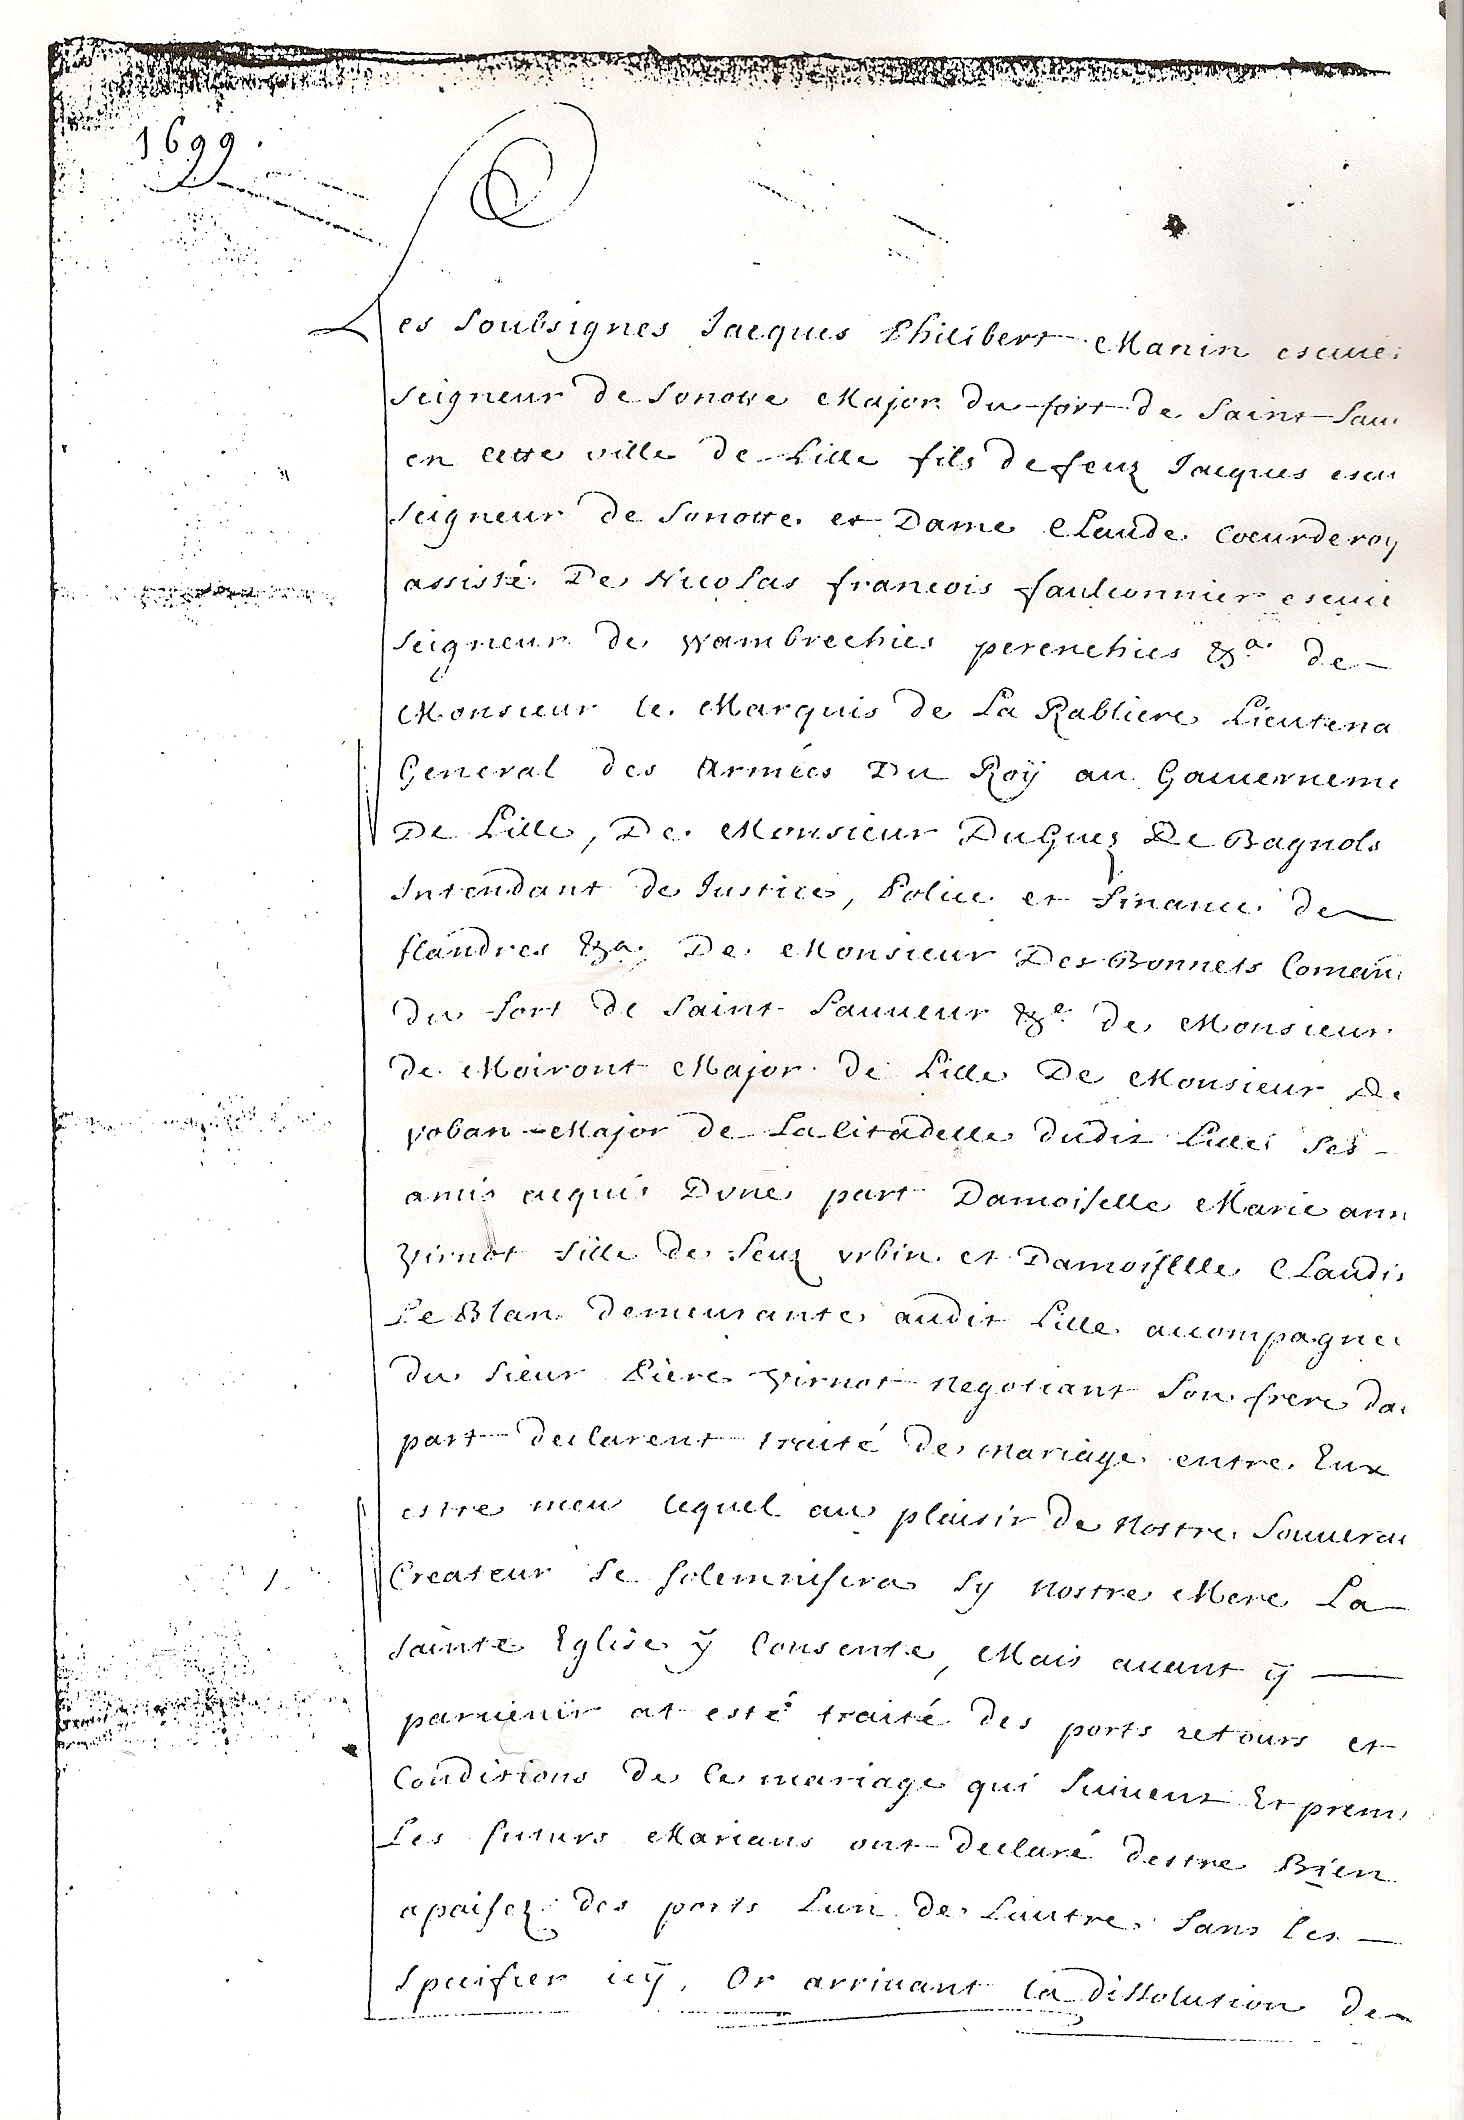 1699.
Les soubsignes Jacques Philibert Manin escuie
seigneur de Sonotte Major du fort de Saint Sau
en cette ville de Lille fils de feuz Jacques escu
seigneur de Sonotte et Dame Claude Coeurderoy
assisté De Nicolas francois faulconnier escuie
seigneur de Wambrechies perenchies &a de
Monsieur le Marquis de La Rabliere Lieutena
General des Armées Du Roÿ au Gouverneme
De Lille, De Monsieur DuGuez De Bagnols
Intendant de Justice, Police et finance de
flandres &a. De Monsieur Des Bonnets Coman
du fort de Saint Sauueur &a de Monsieur
de Moiront Major de Lille De Monsieur De
voban Major de La Citadelle dudit Lille ses
amis acquis Dune part Damoiselle Marie ann
Virnot fille de feuz vrbin et Damoiselle Claudi
Le Blan demeurante audit Lille accompagne
du sieur Piere Virnot negotiant son frere da
part declarent traité de mariage entre Eux
estre meu lequel au plaisir de nostre Souuerai
Createur se solemnisera sy nostre Mere La
sainte Eglise ÿ Consente, Mais auant ÿ
paruenir at esté traité des ports retours et
Conditions de Ce mariage qui suiuent Et prem
Les futurs Marians ont declaré destre Bien
apaisez des ports Lun de Lautre sans les
specifier icÿ, Or arriuant la dissolution de